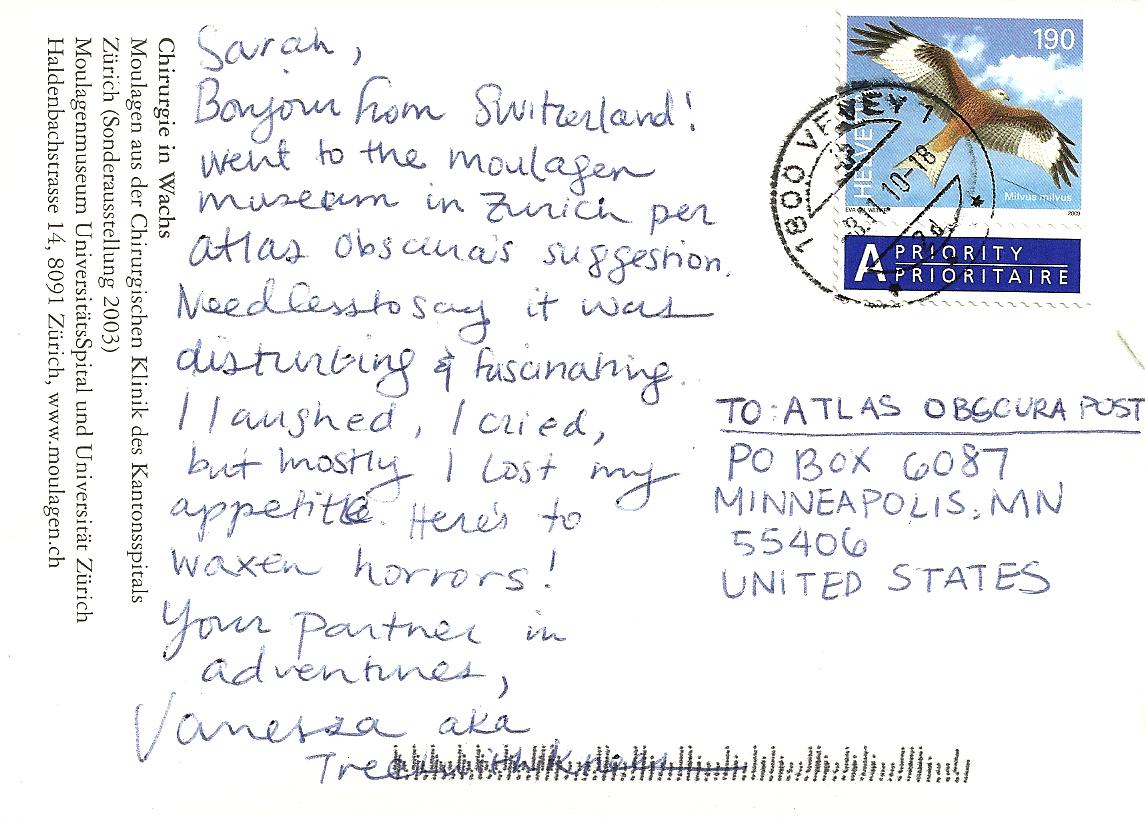 Chirurgie in Wachs
Moulagen aus der Chirurgischen Klinik des Kantonsspitals
Zürich (Sonderausstellung 2003)
Moulagenmuseum UniversitätsSpital und Universität Zürich
Haldenbachstrasse 14, 8091 Zürich, www.moulagen.ch
Sarah,
Bonjour from Switzerland!
Went to the moulagen
museum in Zurich per
atlas obscura's suggestion.
Needless to say it was
disturbing & fascinating.
I laughed, I cried,
but mostly I lost my
appetite. Here's to
waxen horrors!
Your partner in
adventures,
Vanessa aka
190
HELVE
Milvus milvus
2009
A PRIORITY
PRIORITAIRE
1800 VEVEY 1
10-18
TO: ATLAS OBSCURA POST
PO BOX 6087
MINNEAPOLIS, MN
55406
UNITED STATES